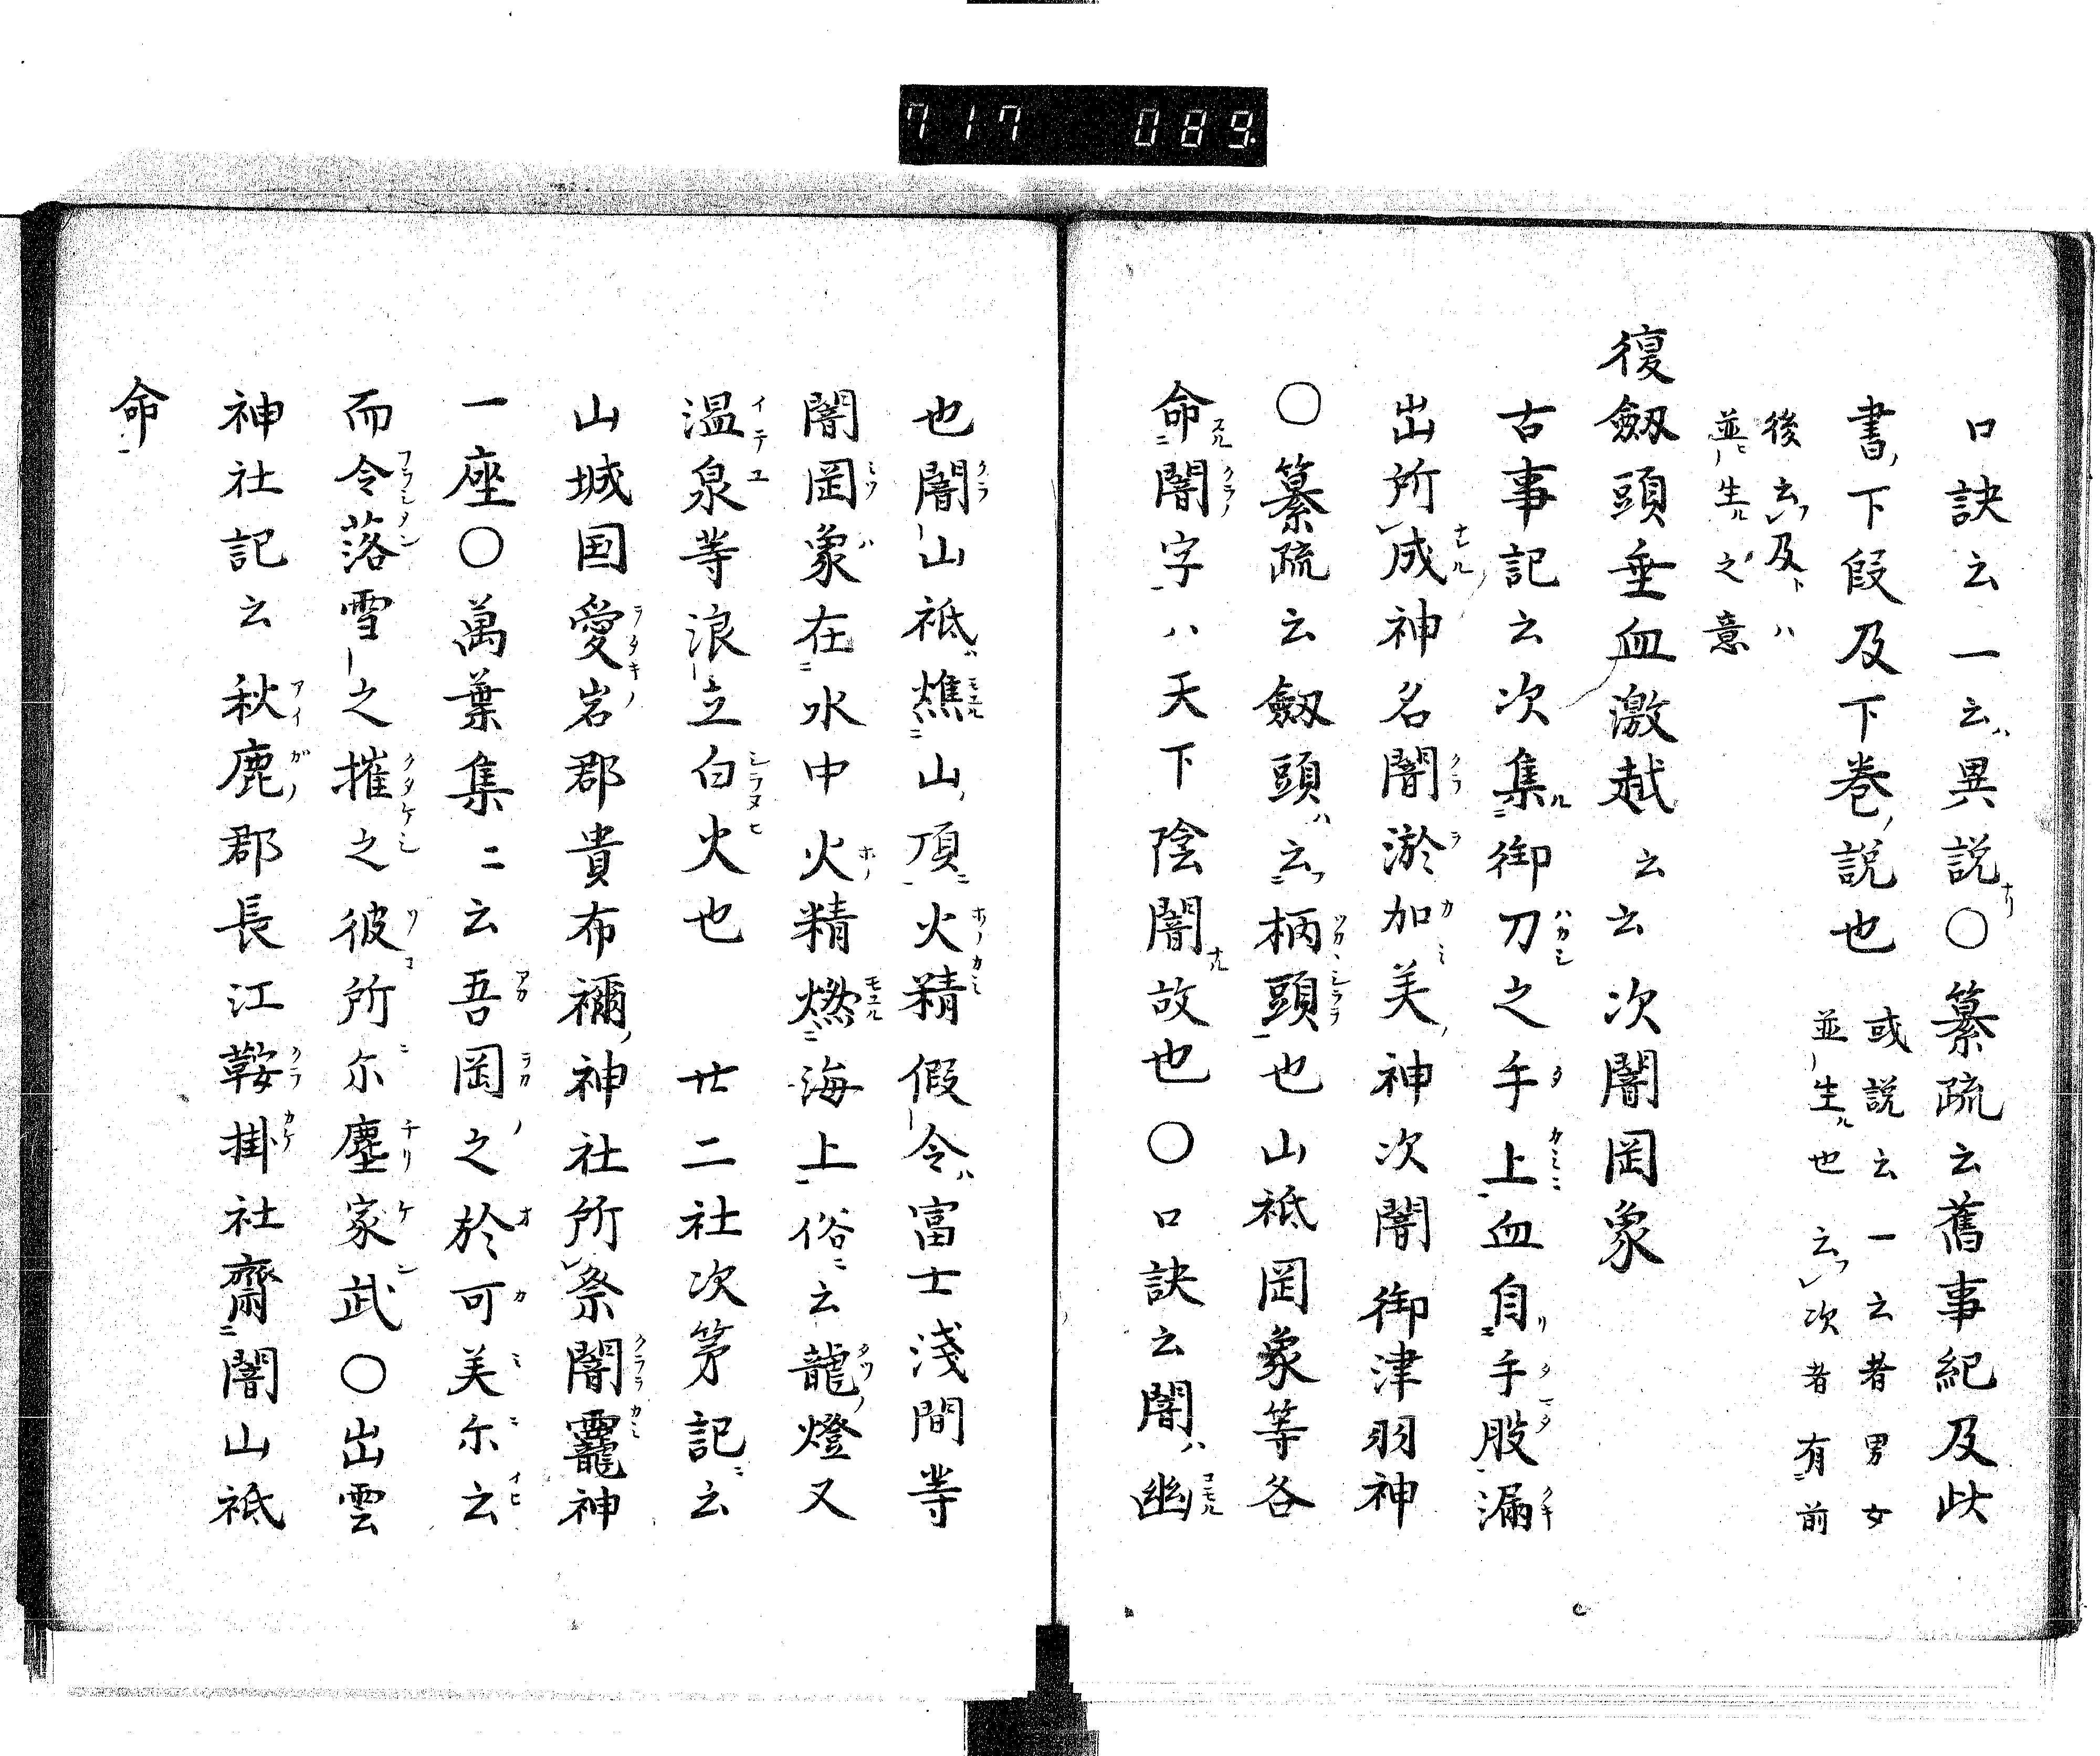 717 089
口訣云一云ハ異説ナリ〇纂疏云舊事紀及此
書ノ下段及下巻ノ説也
或説云一云者男女
並ニ生ル也云フ次者有前
後云フ及トハ
並ヒ生ルヽ之意
復劔頭垂血激越云云次闇罔象
古事記云次集御刀之手上血自手股漏
出所成神名闇淤加美神次闇御津羽神
〇纂疏云劔頭ハ云柄頭也山祇罔象等各
命闇字ハ天下陰闇故也〇口訣云闇ハ幽
也闇山祇ハ燋山ノ頂火精假令ハ富士淺間等
闇罔象ハ在水中火精燃海上俗ニ云龍ノ燈又
温泉等浪立白火也 廿二社次第記ニ云
山城国愛岩郡貴布禰ノ神社所祭闇龗神
一座〇萬葉集ニ云吾岡之於可美尓云
而令落雪之摧之彼所尓塵家武〇出雲
神社記云秋鹿郡長江鞍掛社齋闇山祇
命